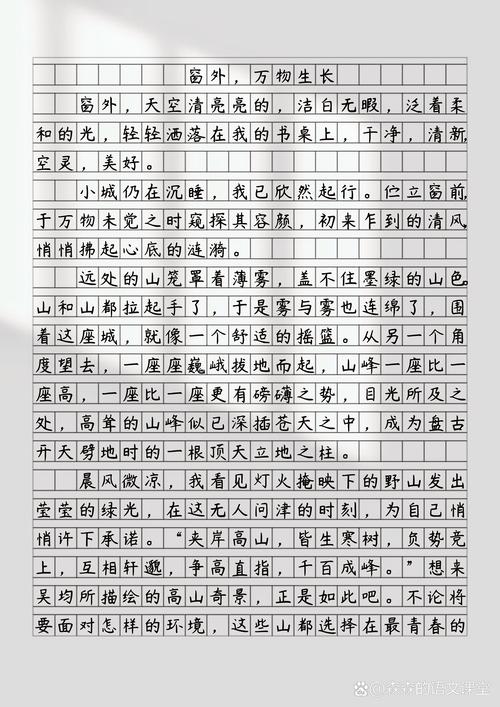 窗外，万物生长
窗外，天空清亮亮的，洁白无暇，泛着柔
和的光，轻轻洒落在我的书桌上，干净，清新，
空灵，美好。
小城仍在沉睡，我已欣然起行。伫立窗前，
于万物未觉之时窥探其容颜，初来乍到的清风
悄悄拂起心底的涟漪。
远处的山笼罩着薄雾，盖不住墨绿的山色。
山和山都拉起手了，于是雾与雾也连绵了，围
着这座城，就像一个舒适的摇篮。从另一个角
度望去，一座座巍峨拔地而起，山峰一座比一
座高，一座比一座更有磅礴之势，目光所及之
处，高耸的山峰似已深插苍天之中，成为盘古
开天劈地时的一根顶天立地之柱。
晨风微凉，我看见灯火掩映下的野山发出
莹莹的绿光，在这无人问津的时刻，为自己悄
悄许下承诺。“夹岸高山，皆生寒树，负势竞
上，互相轩邈，争高直指，千百成峰。”想来
吴均所描绘的高山奇景，正是如此吧。不论将
要面对怎样的环境，这些山都选择在最青春的
@森森的语文课堂